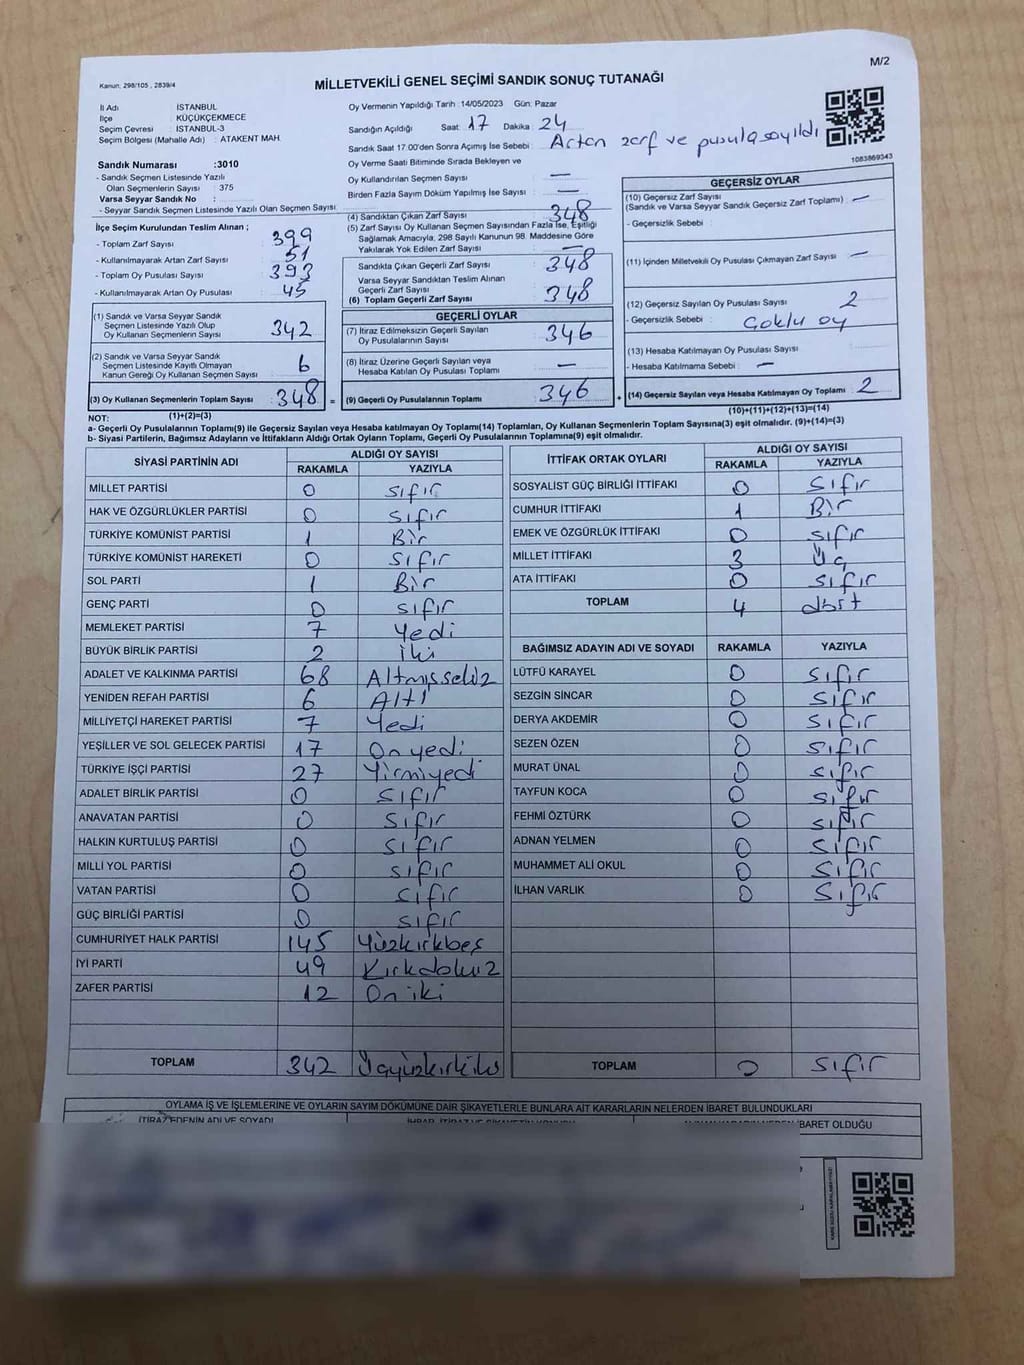 M/2
Kanun: 298/105 , 2839/4
MİLLETVEKİLİ GENEL SEÇİMİ SANDIK SONUÇ TUTANAĞI
İl Adı : İSTANBUL
İlçe : KÜÇÜKÇEKMECE
Seçim Çevresi : İSTANBUL-3
Seçim Bölgesi (Mahalle Adı) : ATAKENT MAH.
Oy Vermenin Yapıldığı Tarih :14/05/2023 Gün: Pazar
Sandığın Açıldığı Saat: 17 Dakika: 24
Sandık Saat 17.00'den Sonra Açımış İse Sebebi : Artan zarf ve pusula sayıldı
Oy Verme Saati Bitiminde Sırada Bekleyen ve
Oy Kullandırılan Seçmen Sayısı : —
Birden Fazla Sayım Döküm Yapılmış İse Sayısı : —
1083869343
Sandık Numarası :3010
- Sandık Seçmen Listesinde Yazılı
Olan Seçmenlerin Sayısı : 375
Varsa Seyyar Sandık No :
- Seyyar Sandık Seçmen Listesinde Yazılı Olan Seçmen Sayısı :
İlçe Seçim Kurulundan Teslim Alınan ;
- Toplam Zarf Sayısı : 399
- Kullanılmayarak Artan Zarf Sayısı : 51
- Toplam Oy Pusulası Sayısı : 393
- Kullanılmayarak Artan Oy Pusulası : 45
(1) Sandık ve Varsa Seyyar Sandık
Seçmen Listesinde Yazılı Olup
Oy Kullanan Seçmenlerin Sayısı : 342
(2) Sandık ve Varsa Seyyar Sandık
Seçmen Listesinde Kayıtlı Olmayan
Kanun Gereği Oy Kullanan Seçmen Sayısı : 6
(3) Oy Kullanan Seçmenlerin Toplam Sayısı : 348 =
(1)+(2)=(3)
(4) Sandıktan Çıkan Zarf Sayısı : 348
(5) Zarf Sayısı Oy Kullanan Seçmen Sayısından Fazla İse, Eşitliği
Sağlamak Amacıyla, 298 Sayılı Kanunun 98. Maddesine Göre
Yakılarak Yok Edilen Zarf Sayısı : —
Sandıkta Çıkan Geçerli Zarf Sayısı : 348
Varsa Seyyar Sandıktan Teslim Alınan
Geçerli Zarf Sayısı :
(6) Toplam Geçerli Zarf Sayısı : 348
GEÇERLİ OYLAR
(7) İtiraz Edilmeksizin Geçerli Sayılan
Oy Pusulalarının Sayısı : 346
(8) İtiraz Üzerine Geçerli Sayılan veya
Hesaba Katılan Oy Pusulası Toplamı : —
(9) Geçerli Oy Pusulalarının Toplamı : 346 +
GEÇERSİZ OYLAR
(10) Geçersiz Zarf Sayısı
(Sandık ve Varsa Seyyar Sandık Geçersiz Zarf Toplamı) : —
- Geçersizlik Sebebi :
(11) İçinden Milletvekili Oy Pusulası Çıkmayan Zarf Sayısı : —
(12) Geçersiz Sayılan Oy Pusulası Sayısı : 2
- Geçersizlik Sebebi : Çoklu oy
(13) Hesaba Katılmayan Oy Pusulası Sayısı :
- Hesaba Katılmama Sebebi : —
(14) Geçersiz Sayılan veya Hesaba Katılmayan Oy Toplamı : 2
(10)+(11)+(12)+(13)=(14)
NOT:
a- Geçerli Oy Pusulalarının Toplamı(9) ile Geçersiz Sayılan veya Hesaba katılmayan Oy Toplamı(14) Toplamları, Oy Kullanan Seçmenlerin Toplam Sayısına(3) eşit olmalıdır. (9)+(14)=(3)
b- Siyasi Partilerin, Bağımsız Adayların ve İttifakların Aldığı Ortak Oyların Toplamı, Geçerli Oy Pusulalarının Toplamına(9) eşit olmalıdır.
SİYASİ PARTİNİN ADI ALDIĞI OY SAYISI
RAKAMLA YAZIYLA
MİLLET PARTİSİ 0 sıfır
HAK VE ÖZGÜRLÜKLER PARTİSİ 0 sıfır
TÜRKİYE KOMÜNİST PARTİSİ 1 Bir
TÜRKİYE KOMÜNİST HAREKETİ 0 sıfır
SOL PARTİ 1 Bir
GENÇ PARTİ 0 sıfır
MEMLEKET PARTİSİ 7 Yedi
BÜYÜK BİRLİK PARTİSİ 2 İki
ADALET VE KALKINMA PARTİSİ 68 Altmışsekiz
YENİDEN REFAH PARTİSİ 6 Altı
MİLLİYETÇİ HAREKET PARTİSİ 7 Yedi
YEŞİLLER VE SOL GELECEK PARTİSİ 17 On yedi
TÜRKİYE İŞÇİ PARTİSİ 27 Yirmiyedi
ADALET BİRLİK PARTİSİ 0 sıfır
ANAVATAN PARTİSİ 0 sıfır
HALKIN KURTULUŞ PARTİSİ 0 sıfır
MİLLİ YOL PARTİSİ 0 sıfır
VATAN PARTİSİ 0 sıfır
GÜÇ BİRLİĞİ PARTİSİ 0 sıfır
CUMHURİYET HALK PARTİSİ 145 Yüzkırkbeş
İYİ PARTİ 49 Kırkdokuz
ZAFER PARTİSİ 12 On iki
TOPLAM 342 Üçyüzkırkiki
İTTİFAK ORTAK OYLARI ALDIĞI OY SAYISI
RAKAMLA YAZIYLA
SOSYALİST GÜÇ BİRLİĞİ İTTİFAKI 0 sıfır
CUMHUR İTTİFAKI 1 Bir
EMEK VE ÖZGÜRLÜK İTTİFAKI 0 sıfır
MİLLET İTTİFAKI 3 Üç
ATA İTTİFAKI 0 sıfır
TOPLAM 4 dört
BAĞIMSIZ ADAYIN ADI VE SOYADI RAKAMLA YAZIYLA
LÜTFÜ KARAYEL 0 sıfır
SEZGİN SİNCAR 0 sıfır
DERYA AKDEMİR 0 sıfır
SEZEN ÖZEN 0 sıfır
MURAT ÜNAL 0 sıfır
TAYFUN KOCA 0 sıfır
FEHMİ ÖZTÜRK 0 sıfır
ADNAN YELMEN 0 sıfır
MUHAMMET ALİ OKUL 0 sıfır
İLHAN VARLIK 0 sıfır
TOPLAM 0 sıfır
OYLAMA İŞ VE İŞLEMLERİNE VE OYLARIN SAYIM DÖKÜMÜNE DAİR ŞİKAYETLERLE BUNLARA AİT KARARLARIN NELERDEN İBARET BULUNDUKLARI
İTİRAZ EDENİN ADI VE SOYADI
İBARET OLDUĞU